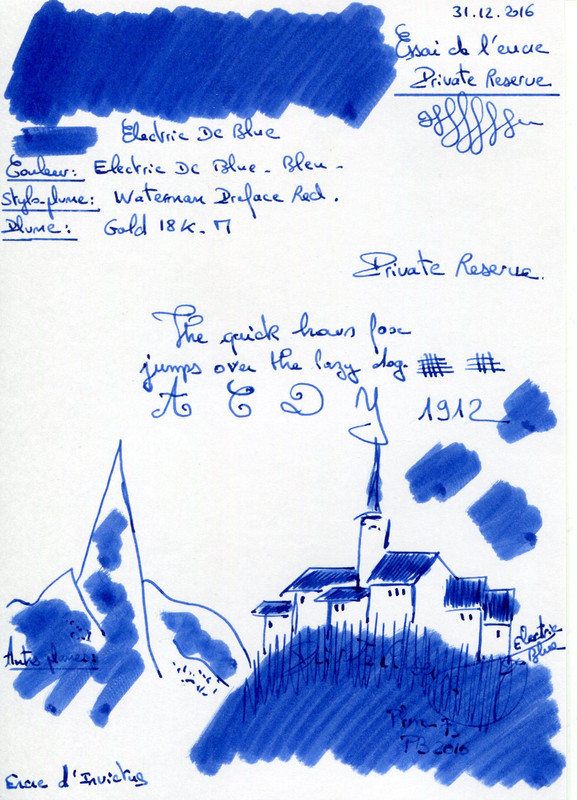 31.12.2016
Essai de l'encre
Private Reserve
Electric DC Blue
Couleur: Electric DC Blue - Bleu -
Stylo-plume: Waterman Preface Red.
Plume: Gold 18K - M
Private Reserve.
The quick brown fox
jumps over the lazy dog.
A C D Y 1912
Electric
Blue
PB 2016
Encre d'Invictus